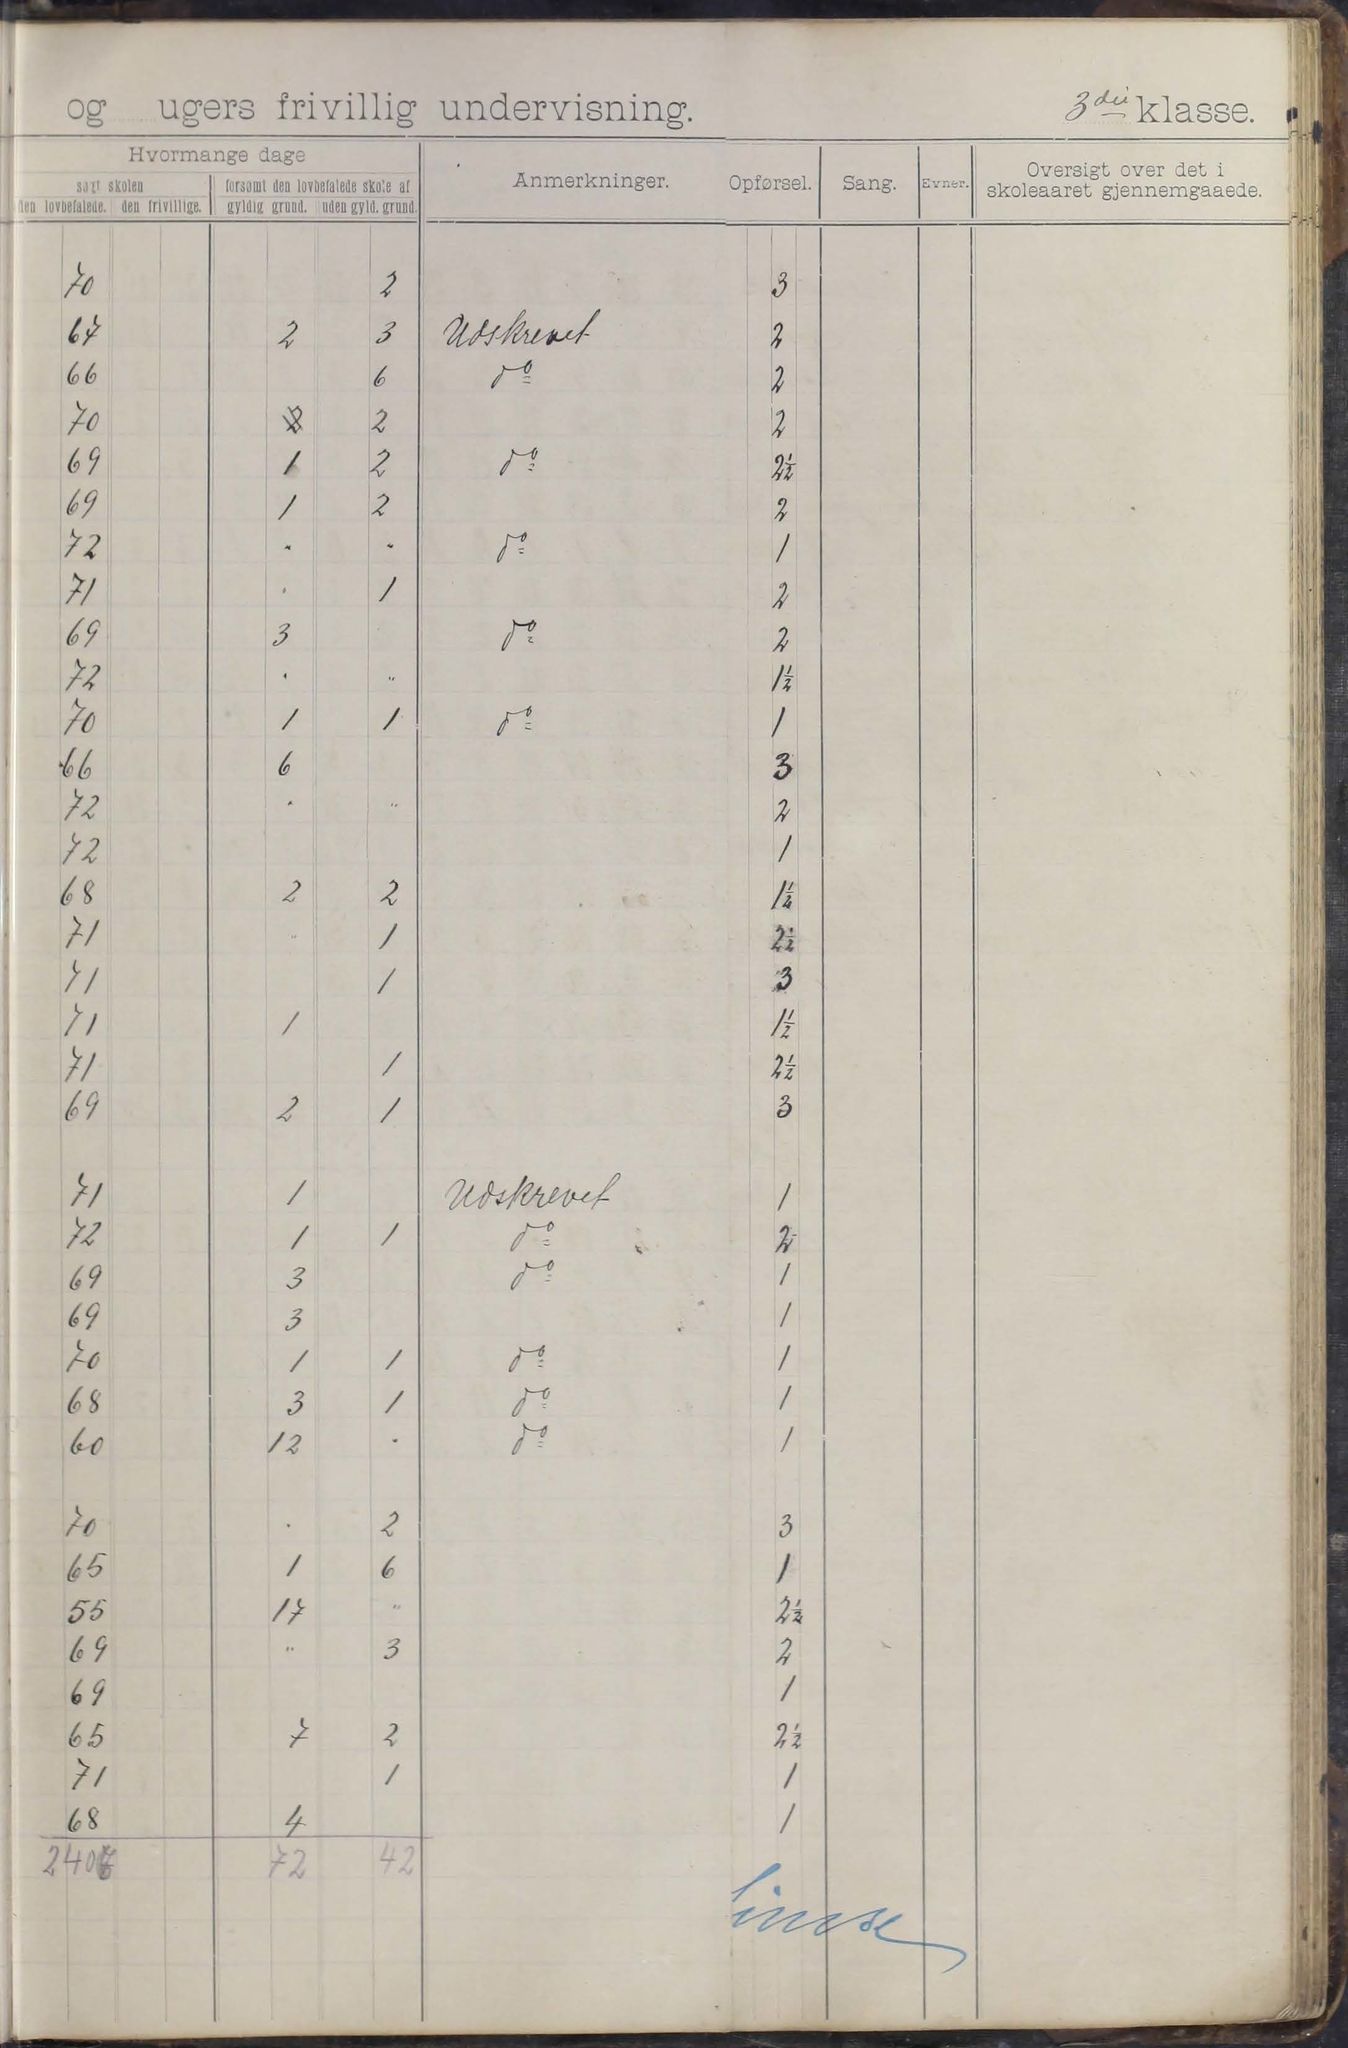 og ugers frivillig undervisning. 3die klasse.
Hvormange dage
søgt skolen
forsømt den lovbefalede skole af
den lovbefalede. den frivillige. gyldig grund. uden gyld. grund.
Anmerkninger. Opførsel. Sang. Evner.
Oversigt over det i
skoleaaret gjennemgaaede.
70 2 3
67 2 3 Udskrevet 2
66 6 do 2
70 2 2
69 1 2 do 2½
69 1 2 2
72 " " do 1
71 " 1 2
69 3 do 2
72 " " 1½
70 1 1 do 1
66 6 3
72 " " 2
72 1
68 2 2 1¼
71 " 1 2½
71 1 3
71 1 1½
71 1 2½
69 2 1 3
71 1 Udskrevet 1
72 1 1 do 2
69 3 do 1
69 3 1
70 1 1 do 1
68 3 1 do 1
60 12 " do 1
70 " 2 3
65 1 6 1
55 17 " 2½
69 " 3 2
69 1
65 7 2 2½
71 1 1
68 4 1
72 42